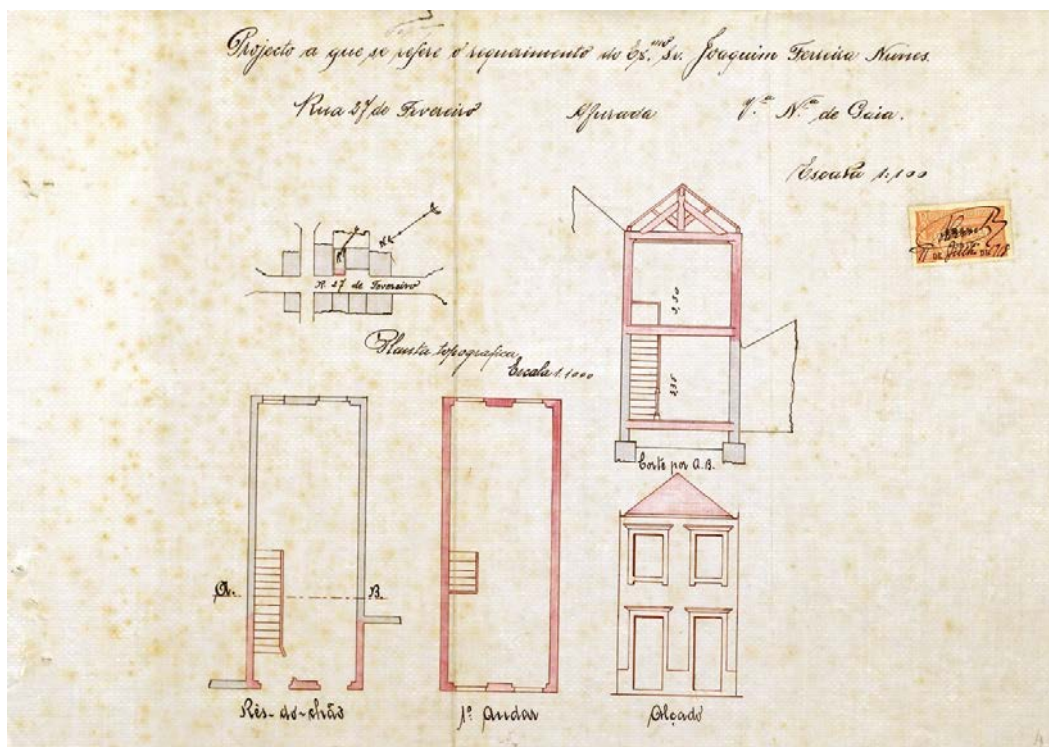 Projecto a que se refere o requerimento do Ex.mo Sr. Joaquim Ferreira Nunes.
Rua 27 de Fevereiro Afurada V.a N.a de Gaia.
Escala 1:100
R. 27 de Fevereiro
Planta topografica
Escala 1:1000
3,30
Corte por A.B.
A.
B.
Rés-do-chão
1º Andar
Alçado